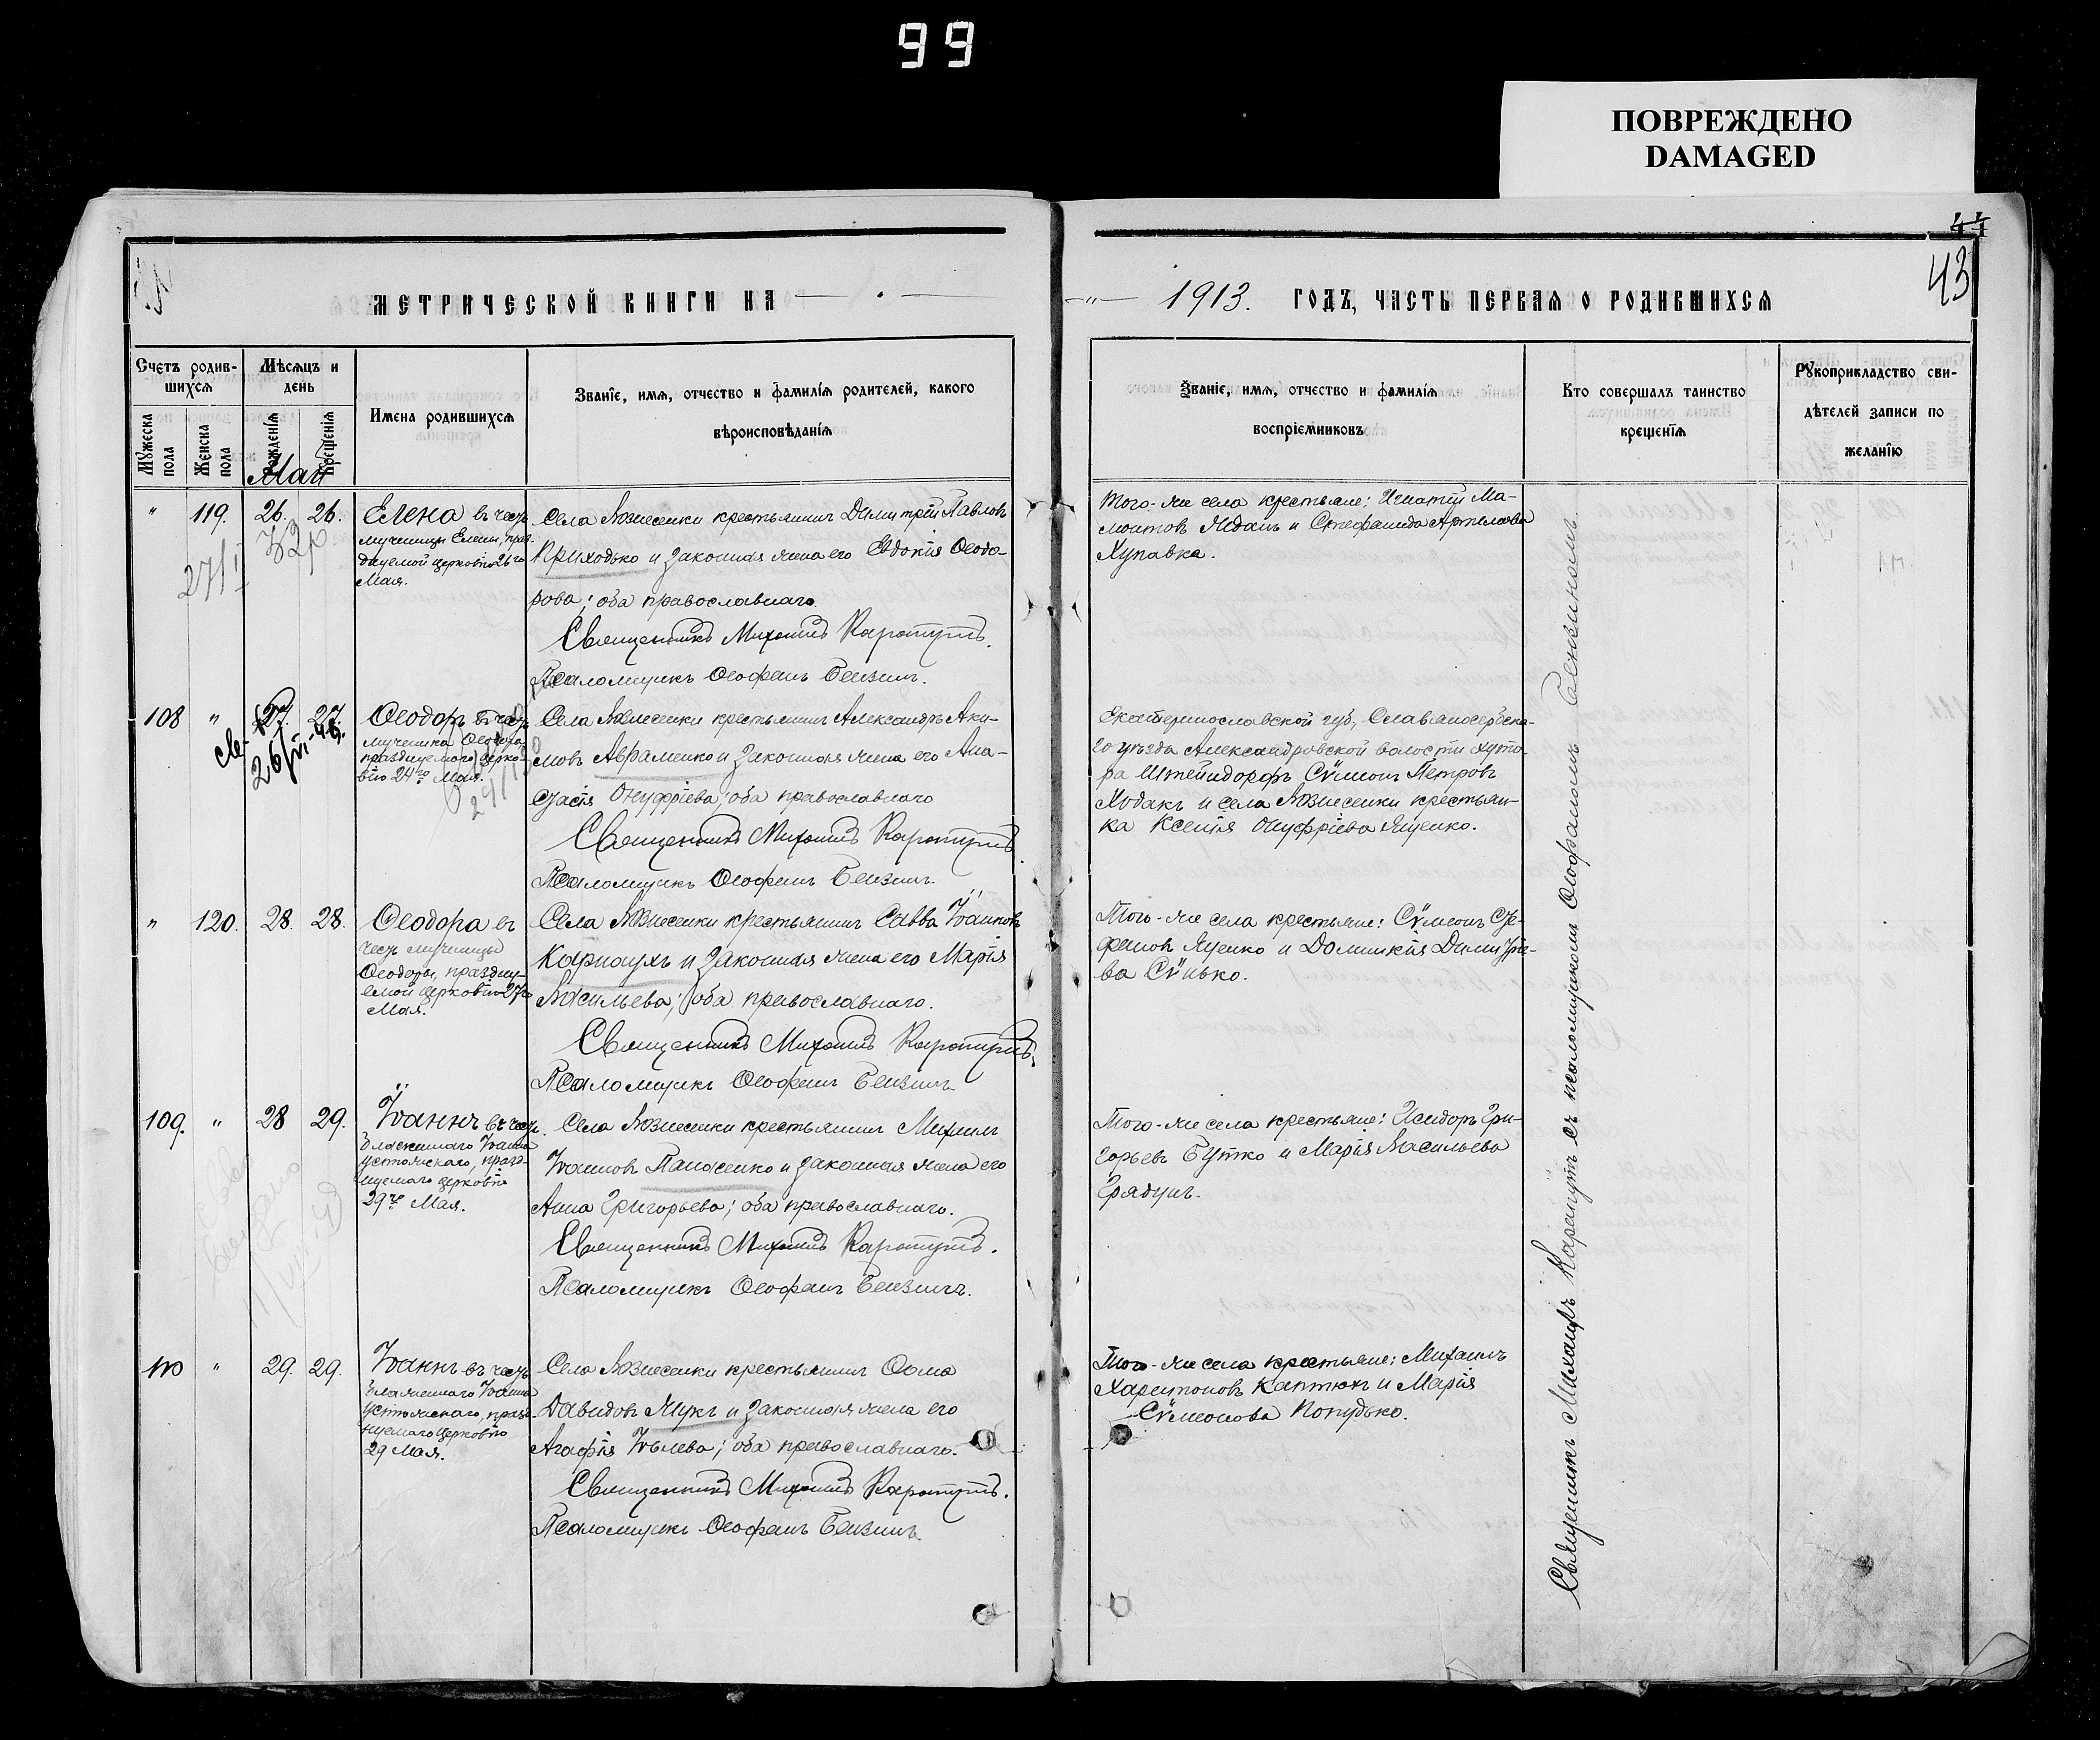 99
ПОВРЕЖДЕНО
DAMAGED
44
43
МЕТРИЧЕСКОЙ КНИГИ НА
1913. ГОДЪ, ЧАСТЬ ПЕРВАЯ О РОДИВШИХСЯ
Счетъ родив-
шихся
Мужеска
пола
Женска
пола
Мѣсяцъ и
день
Рожденія
Крещенія
Имена родившихся
Званіе, имя, отчество и фамилія родителей, какого
вѣроисповѣданія
Званіе, имя, отчество и фамилія
воспріемниковъ
Кто совершалъ таинство
крещенія
Рукоприкладство сви-
дѣтелей записи по
желанію
Май
" 119. 26. 26.
Елена въ честь
мученицы Елены, праз-
днуемой церковію 26го
Мая.
Села Вознесенки крестьянинъ Димитрій Павловъ
Приходько и законная жена его Евдокія Ѳеодо-
рова; оба православнаго.
Священникъ Михаилъ Карапутъ.
Псаломщикъ Ѳеофанъ Бензинъ.
Того-же села крестьяне: Игнатій Ма-
монтовъ Жданъ и Стефанида Артемова
Хупавка.
108 " 27. 27.
Ѳеодоръ въ честь
мученика Ѳеодора,
празднуемаго церко-
вію 24го Мая.
Села Вознесенки крестьянинъ Александръ Аки-
мовъ Авраменко и законная жена его Ана-
стасія Онуфріева; оба православнаго
Священникъ Михаилъ Карапутъ
Псаломщикъ Ѳеофанъ Бензинъ.
Екатеринославской губ., Славяносербска-
го уѣзда Александровской волости хуто-
ра Штейндорфъ Сѵмеонъ Петровъ
Ходакъ и села Вознесенки крестьян-
ка Ксенія Онуфріева Яценко.
" 120. 28. 28.
Ѳеодора въ
честь мученицы
Ѳеодоры, праздну-
емой церковію 27го
Мая.
Села Вознесенки крестьянинъ Савва Іоанновъ
Карнаухъ и законная жена его Марія
Васильева; оба православнаго.
Священникъ Михаилъ Карапутъ.
Псаломщикъ Ѳеофанъ Бензинъ
Того-же села крестьяне: Сѵмеонъ Сте-
фановъ Яценко и Домникія Димитріе-
ва Сѵнько.
109. " 28 29.
Іоаннъ въ честь
блаженнаго Іоанна
Устюжскаго, празд-
нуемаго церковію
29го Мая.
Села Вознесенки крестьянинъ Михаилъ
Іоанновъ Панасенко и законная жена его
Анна Григорьева; оба православнаго.
Священникъ Михаилъ Карапутъ.
Псаломщикъ Ѳеофанъ Бензинъ.
Того-же села крестьяне: Исидоръ Гри-
горьевъ Бутко и Марія Васильева
Грядунъ.
110 " 29. 29.
Іоаннъ въ честь
блаженнаго Іоанна
Устюжскаго, празд-
нуемаго церковію
29 Мая.
Села Вознесенки крестьянинъ Ѳома
Давидовъ Жукъ и законная жена его
Агафія Іовлева; оба православнаго.
Священникъ Михаилъ Карапутъ.
Псаломщикъ Ѳеофанъ Бензинъ
Того-же села крестьяне: Михаилъ
Харитоновъ Каптюхъ и Марія
Сѵмеонова Попудько.
Священникъ Михаилъ Карапутъ съ псаломщикомъ Ѳеофаномъ Бензинымъ.